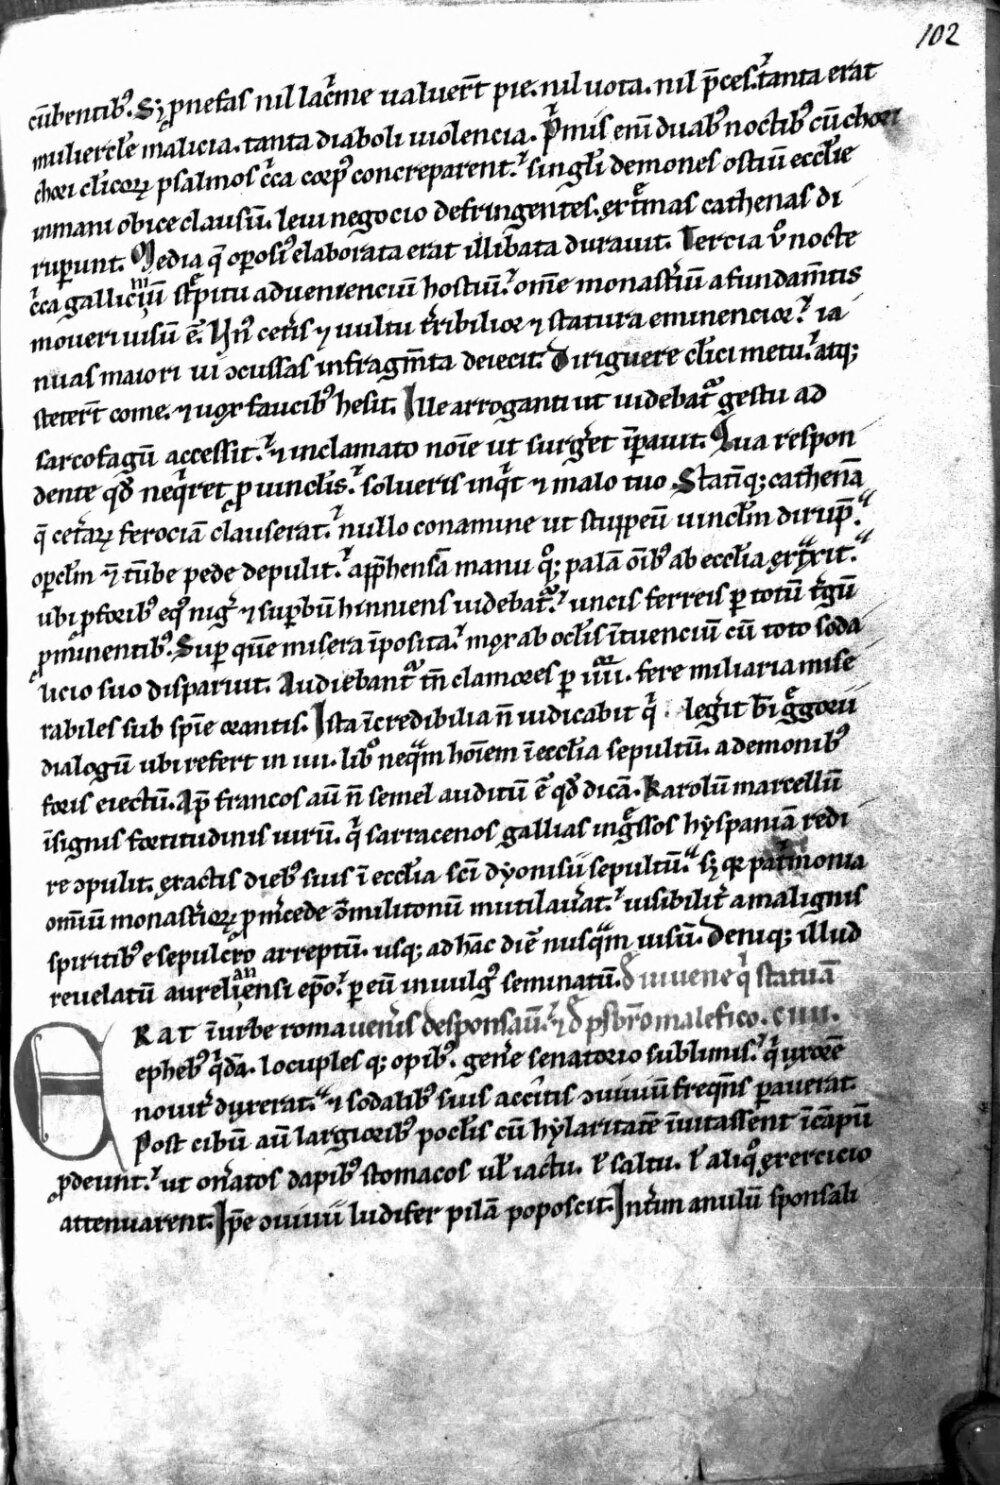 102
cūbentibꝰ. Sꝫ ꝓ nefas nil lac̾me ualuer̄t pie. nil uota. nil p̄ces. tanta erat
mulierc̄le malicia. tanta diaboli uiolencia. Pͥmis eni᷒ duabꝰ noctibꝰ cū chori
chori cl̄icoꝝ psalmos c̾ca corpꝰ concreparent. singl̄i demones ostiū eccl̄ie
inmani obice clausū. leui negocio defringentes. extͤmas cathenas di
ruꝑunt. Media q̄ oꝑosiꝰ elaborata erat illibata durauit. Tercia u̾o nocte
c̾ca gallicinium st̾pitu adueniencium hostiū. om̄e monast̾iū a fundam̄tis
moueri uisū ē. Vnꝰ cet̾is ⁊ uultu t̾ribilior ⁊ statura eminencior. ia
nuas maiori ui ↄcussas in fragm̄ta deiecit. Diriguere cl̄ici metu. atqꝫ
steter̄t come. ⁊ uox faucibꝰ hesit. Ille arroganti ut uidebat̾ gestu ad
sarcofagū accessit. ⁊ inclamato noīe ut surg̾et īꝑauit. Qua respon
dente qd̄ neqͥret ꝓ uincl̄is. solueris inqͥt ⁊ malo tuo. Statīqꝫ cathenā
q̄ cet̾aꝝ ferociā clauserat. nullo conamine ut stuppeū uincl̄m dirup̄.
oꝑcl̄m ⁊̄ tūbe pede depulit. app̄hensā manu qͦꝫ palā oīb᷒ ab eccl̄ia extͣxit.
ubi p̄ foribꝰ eqꝰ nig̾ ⁊ suꝑbū hinniens uidebat̾. uncis ferreis ꝑ totū t̾gū
ꝓminentibꝰ. Suꝑ quē misera īposita. mox ab ocl̄is ītuenciū cū toto soda
licio suo disparuit. Audiebant̾ tn̄ clamores ꝑ iiii. fere miliaria mise
rabiles sub sp̄ie orantis. Ista īcredibilia n̄ iudicabit qͥ leg̾it bt̄i gͤgorii
dialogū ubi refert in iiii. libͦ neqͣm hoīem ī eccl̄ia sepultū. a demonibꝰ
foris eiectū. Ap̄ francos aū n̄ semel auditū ē qd̄ dicā. Karolū marcellū
īsignis fortitudinis uirū. qͥ sarracenos gallias ingͤssos hyspaniā redi
re ↄpulit. exactis diebꝰ suis ī eccl̄ia sc̄i dyonisii sepultū. sꝫ qr pat̾monia
om̄iū monast̾ioꝝ ꝓ m̾cede ↄ̄militonū mutilau̾at. uisibilit̾ a malignis
spiritibꝰ e sepulcro arreptū. usqꝫ ad hāc diē nusqͣm uisū. Deniqꝫ illud
reuelatū aurelianensi ep̄o. ꝑ eū in uulgꝰ seminatū. d̄ iuuene qͥ statuā
ERAT ī urbe roma uen̾is desponsau̾. ⁊ d̄ psb̄ro malefico. CVII.
ephebꝰ qͥdā. locuples qꝫ opibꝰ. gen̾e senatorio sublimis. qͥ uxorē
nouit̾ duxerat. ⁊ sodalibꝰ suis accītis ↄuiuiū freqn̄s ꝑauerat.
Post cibū aū largioribꝰ pocl̄is cū hylaritatē īuitassent ī cāpū
ꝓdeunt. ut on̾atos dapibꝰ stomacos ul̄ iactu. l̄ saltu. l̄ aliqͦ exercicio
attenuarent. Ip̄e ↄuiuii ludifer pilā poposcit. Int̾im anulū sponsali